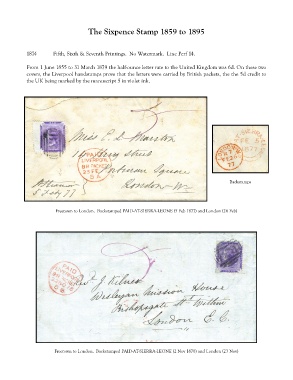 The Sixpence Stamp 1859 to 1895
1874 Fifth, Sixth & Seventh Printings. No Watermark. Line Perf 14.
From 1 June 1855 to 31 March 1879 the half-ounce letter rate to the United Kingdom was 6d. On these two
covers, the Liverpool handstamps prove that the letters were carried by British packets, the the 5d credit to
the UK being marked by the manuscript 5 in violet ink.
Miss E S Marston
Portman Square
London W
5 Feby 77
LIVERPOOL
BR PACKET
LONDON
77
Backstamps
Freetown to London. Backstamped PAID-AT-SIERRA-LEONE (5 Feb 1877) and London (26 Feb)
Revd J Kilner
Wesleyan Mission House
Bishopsgate St Within
London E.C.
PAID
Freetown to London. Backstamped PAID-AT-SIERRA-LEONE (2 Nov 1876) and London (23 Nov)